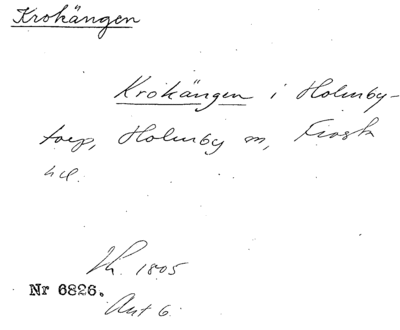 Krokängen
Krokängen i Holmby-
torp, Holmby sn, Frosta
hd.
Sk. 1805
Nr 6826.
Akt 6.